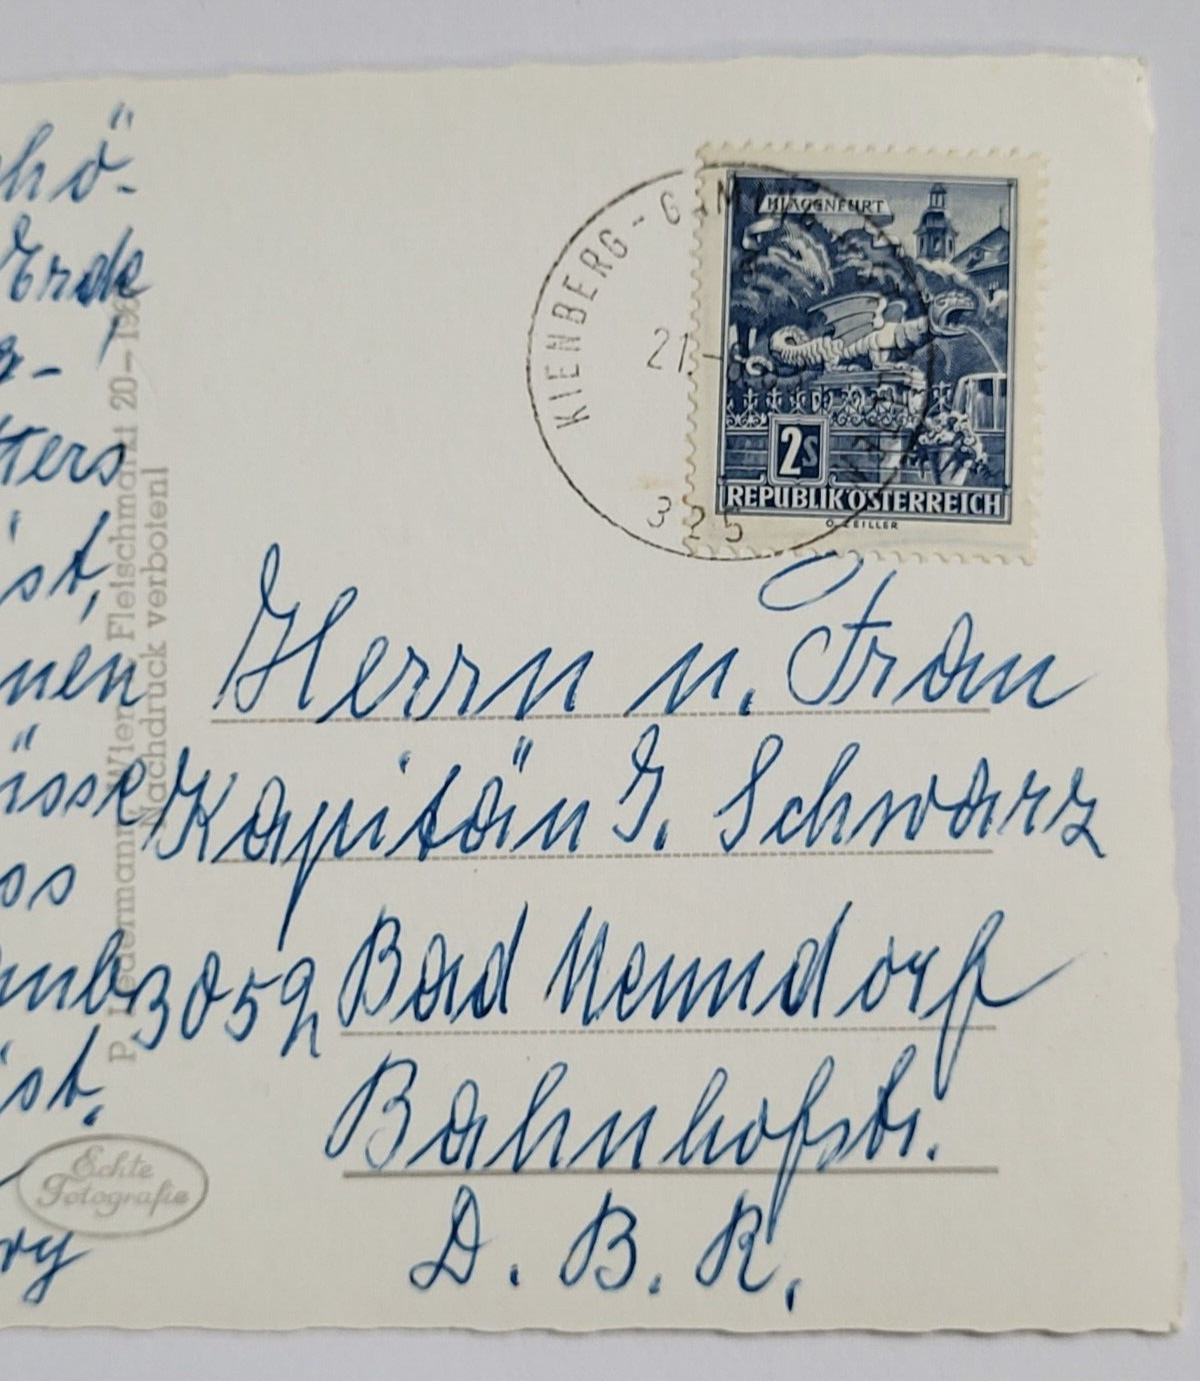 hö-
Erde
tters
ist,
nen
üsse
ist.
P. Ledermann, Wien I, Fleischmarkt 20-
Nachdruck verboten!
Echte
Fotografie
KIENBERG-GAMING
21-
3 2 5
KLAGENFURT
2S
REPUBLIK ÖSTERREICH
O. ZEILLER
Herrn u. Frau
Kapitän G. Schwarz
3052 Bad Nenndorf
Bahnhofstr.
D. B. R.